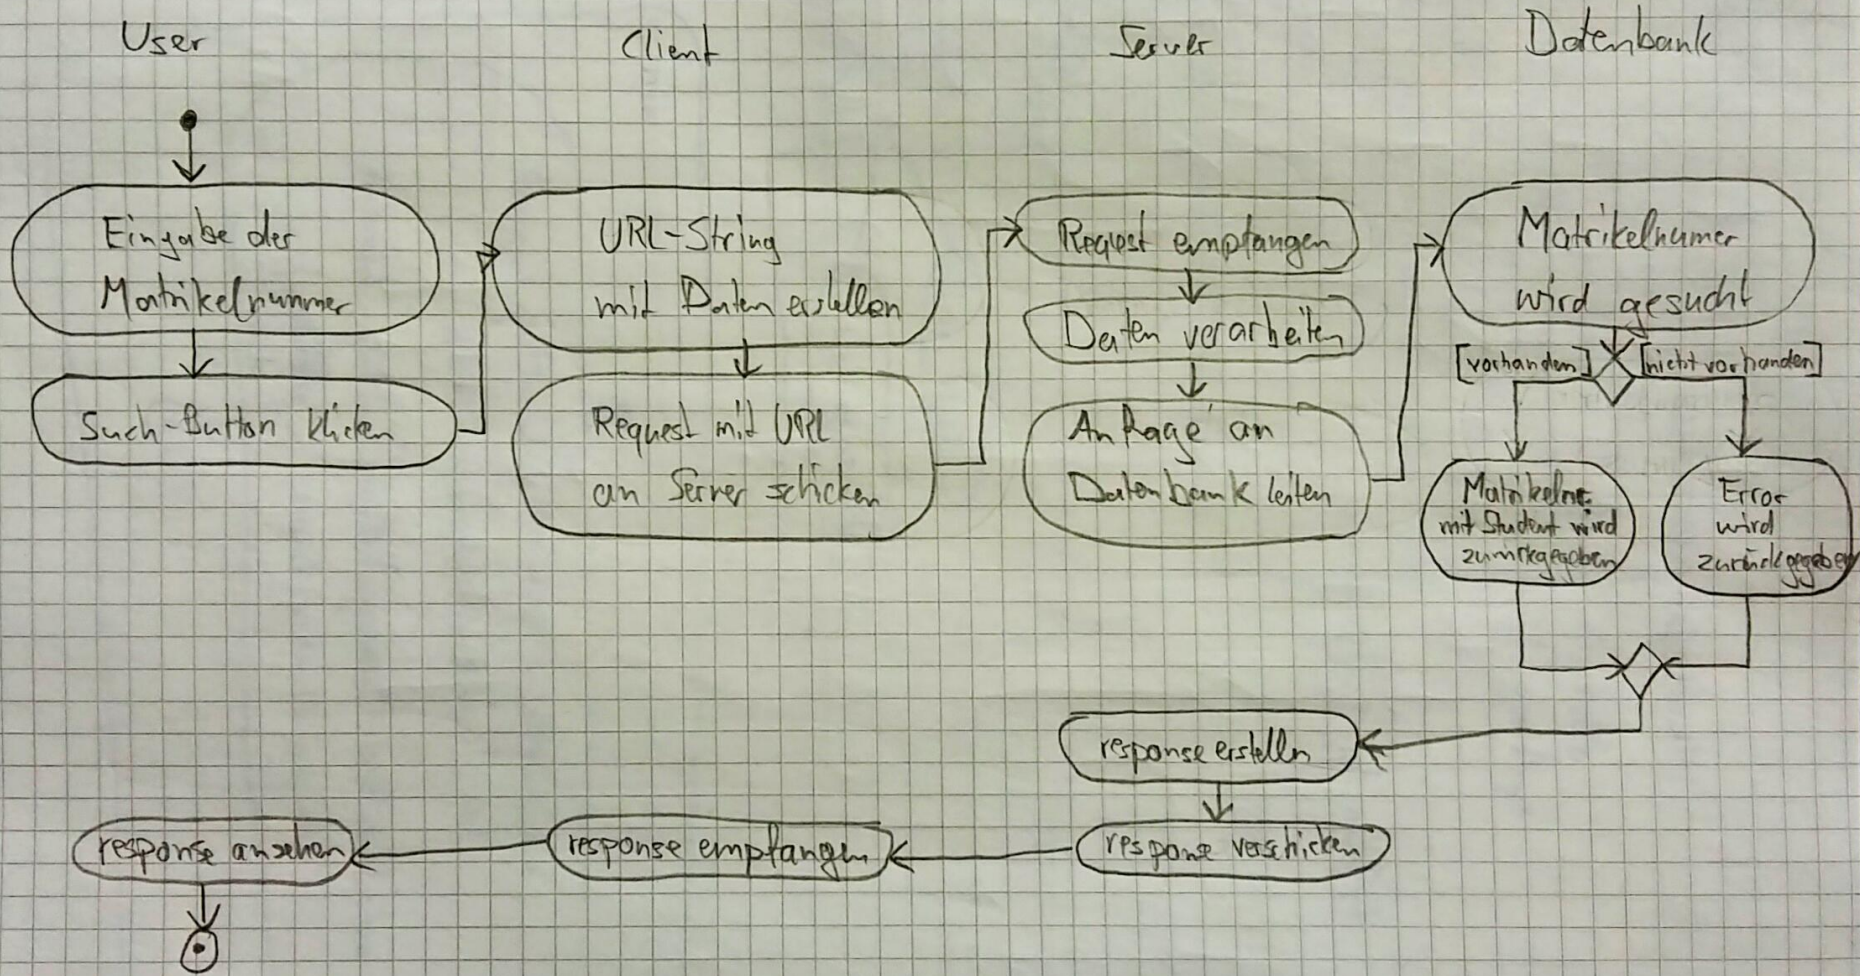 User
Client
Server
Datenbank
Eingabe der
Matrikelnummer
Such-Button klicken
URL-String
mit Daten erstellen
Request mit URL
an Server schicken
Request empfangen
Daten verarbeiten
Anfrage an
Datenbank leiten
Matrikelnumer
wird gesucht
[vorhanden]
[nicht vorhanden]
Matrikelnr.
mit Student wird
zurückgegeben
Error
wird
zurückgegeben
response erstellen
response verschicken
response empfangen
response ansehen